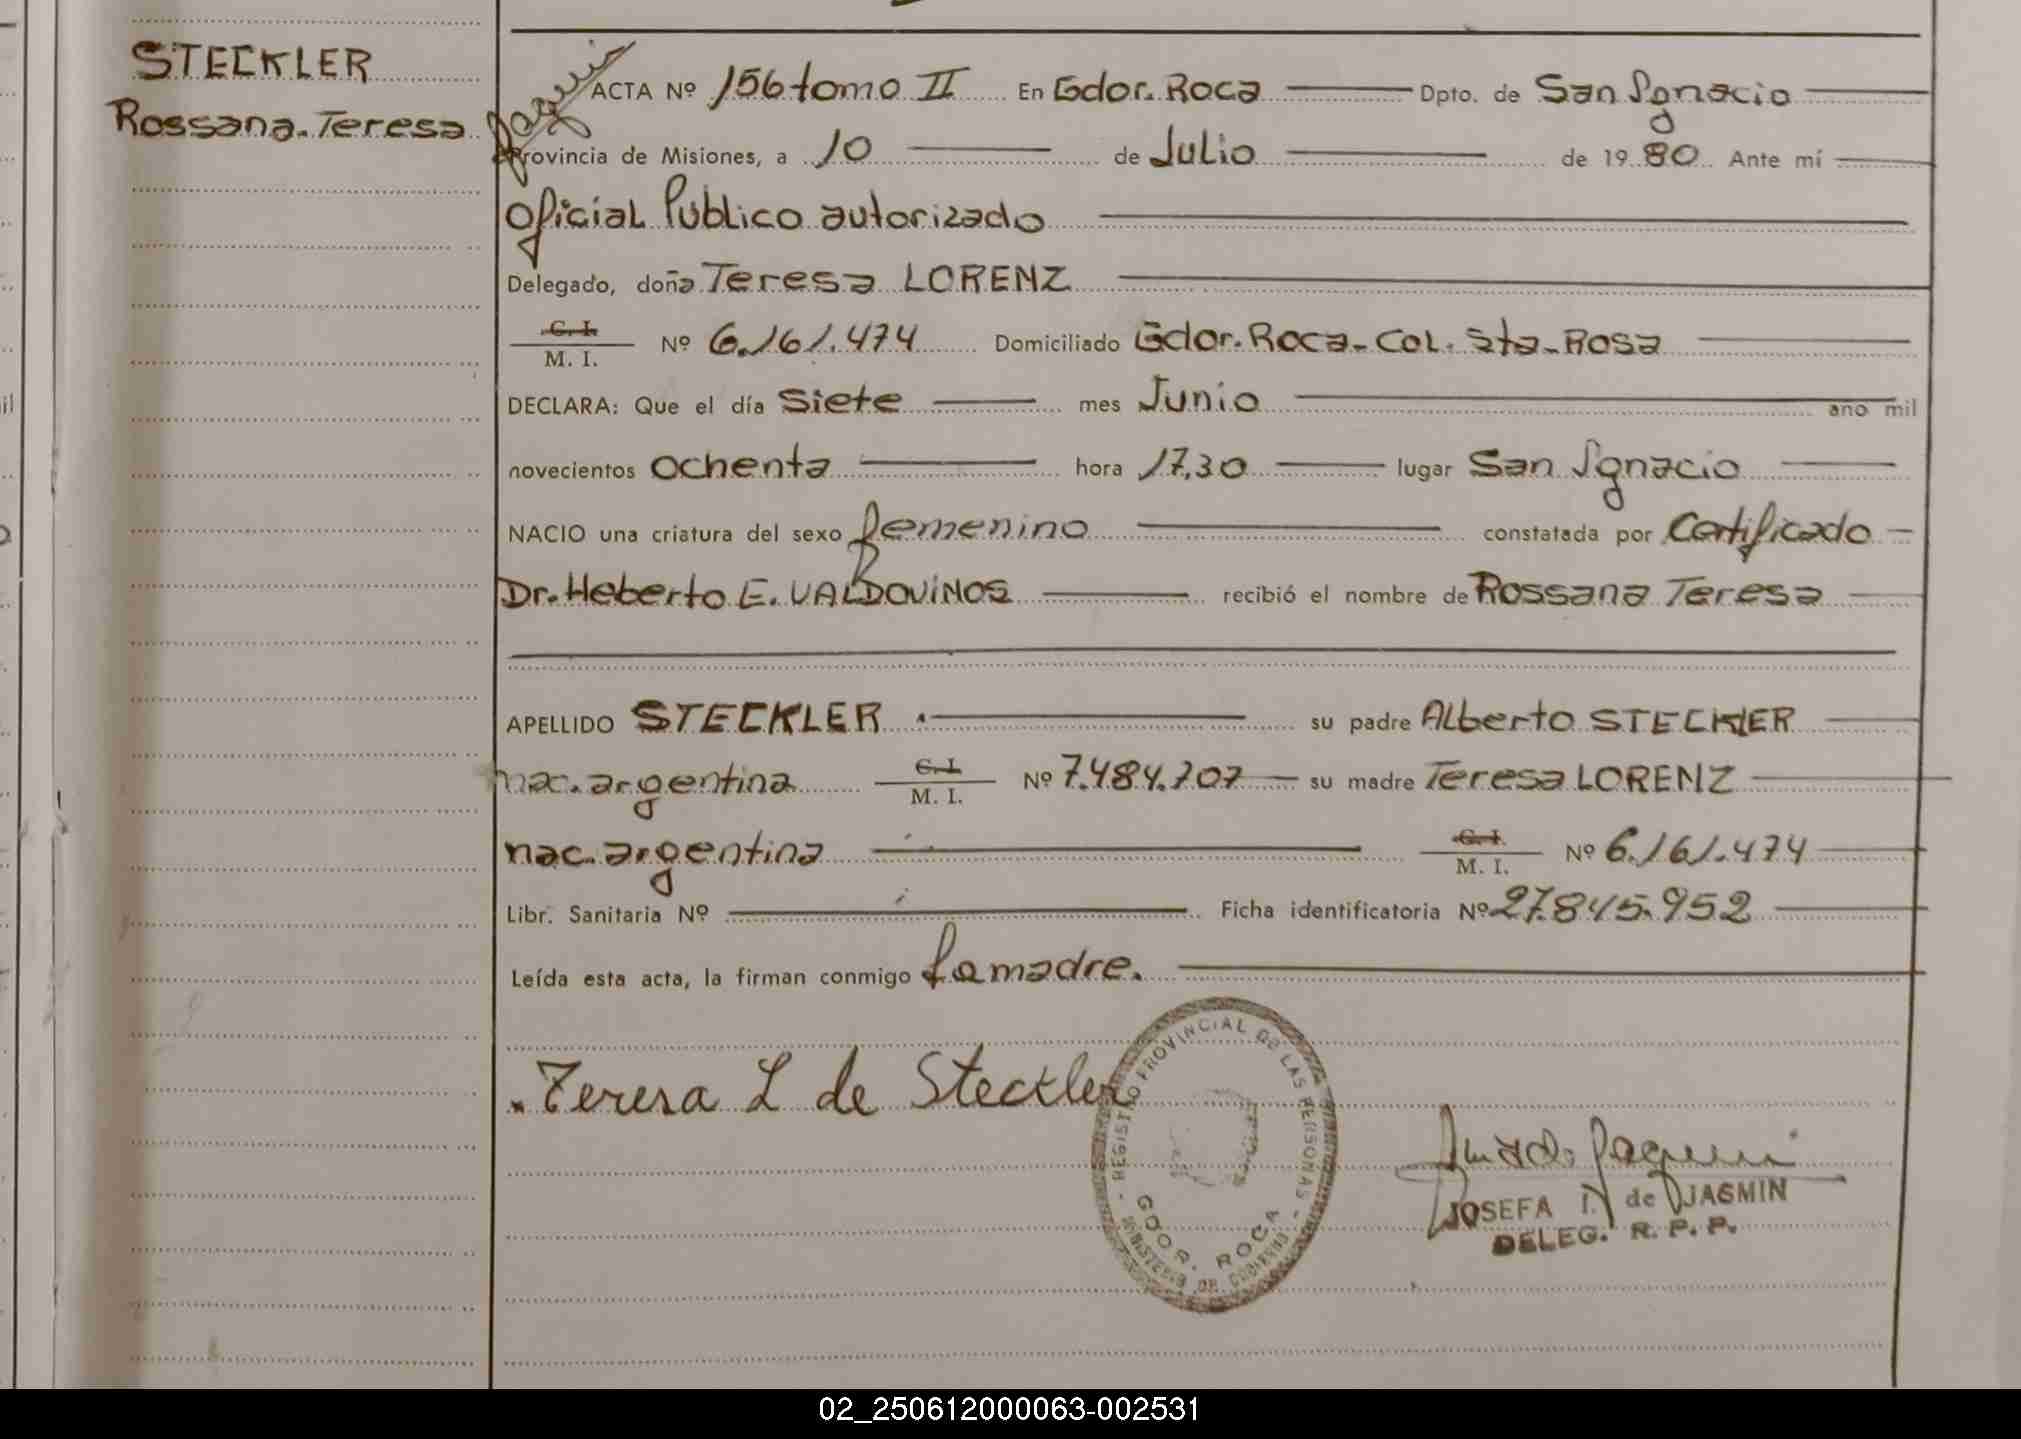 STECKLER
Rossana Teresa
ACTA Nº 156 tomo II En Gdor. Roca Dpto. de San Ignacio
Provincia de Misiones, a 10 de Julio de 1980 Ante mí
Oficial Público autorizado
Delegado, doña Teresa LORENZ
C. I.
M. I. Nº 6.161.474 Domiciliado Gdor. Roca - Col. Sta. Rosa
DECLARA: Que el día Siete mes Junio año mil
novecientos ochenta hora 17,30 lugar San Ignacio
NACIO una criatura del sexo femenino constatada por Certificado
Dr. Heberto E. VALDOVINOS recibió el nombre de Rossana Teresa
APELLIDO STECKLER su padre Alberto STECKLER
nac. argentina C. I. M. I. Nº 7.484.707 su madre Teresa LORENZ
nac. argentina C. I. M. I. Nº 6.161.474
Libr. Sanitaria Nº Ficha identificatoria Nº 27.845.952
Leída esta acta, la firman conmigo la madre.
Teresa L de Steckler
REGISTRO PROVINCIAL DE LAS PERSONAS
GDOR. ROCA
MINISTERIO DE GOBIERNO
JOSEFA de JASMIN
DELEG. R. P. P.
02_250612000063-002531